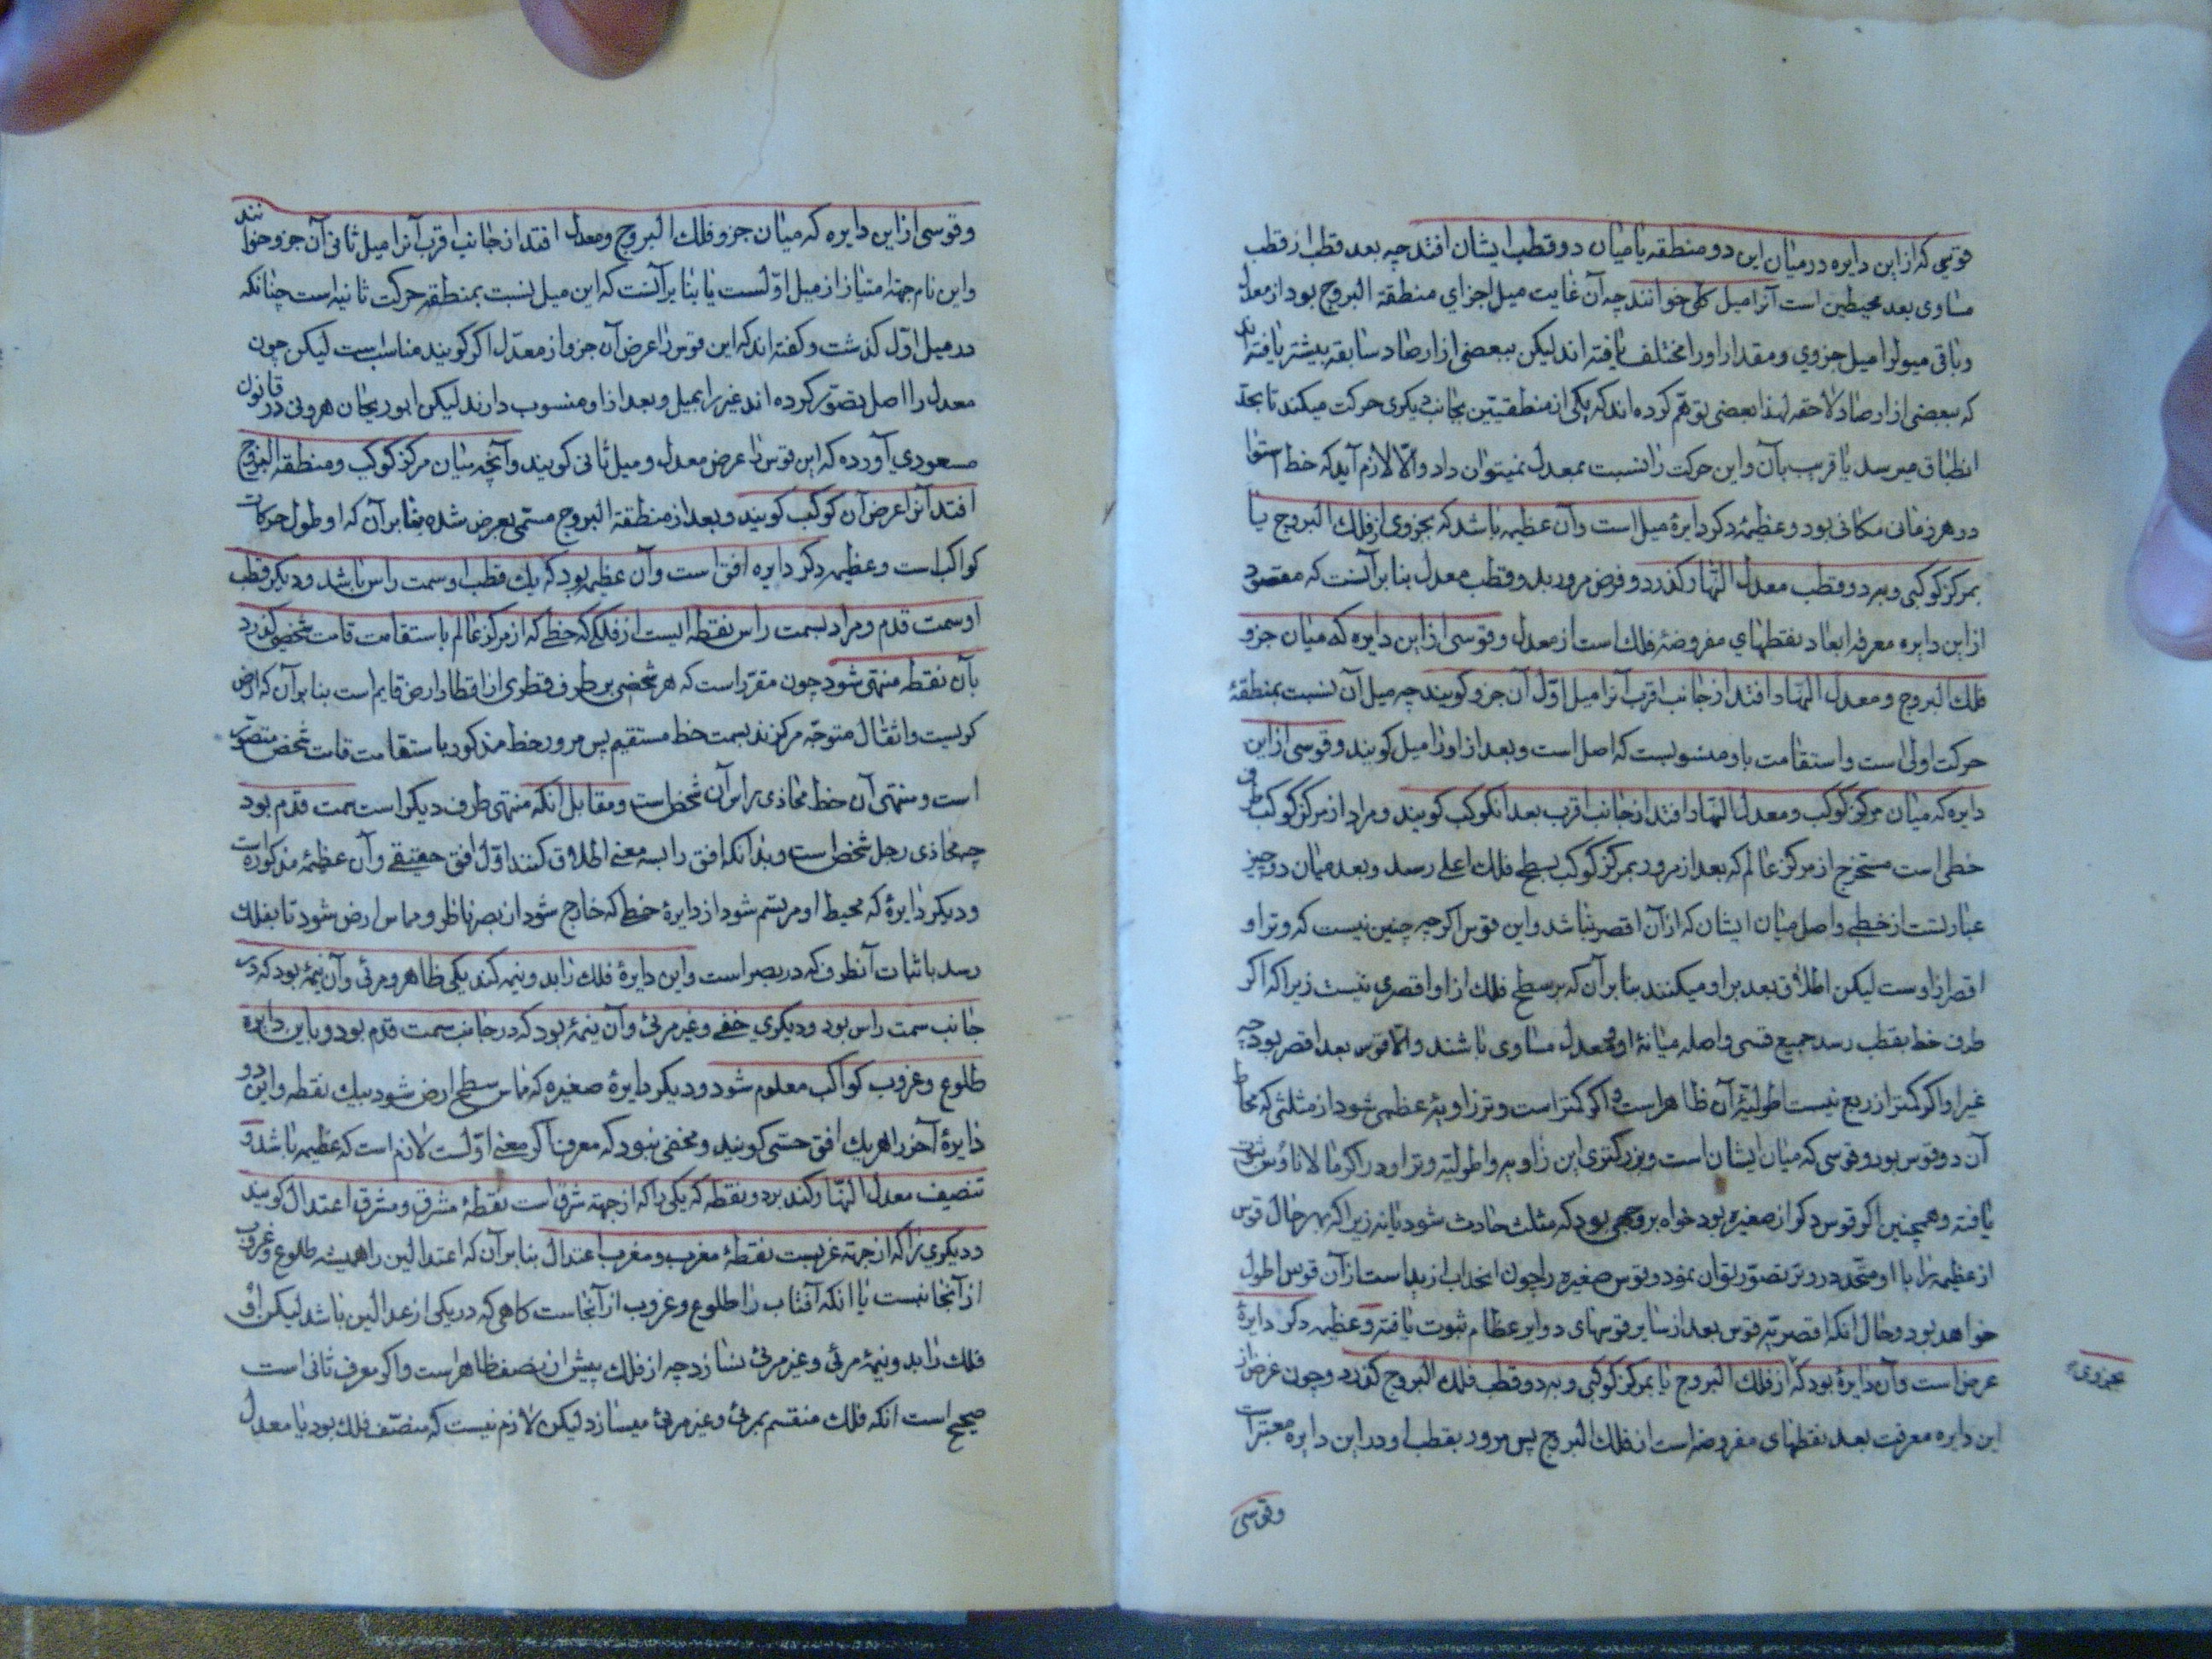 قوسی که از این دایره در میان این دو منطقه یا میان دو قطب ایشان افتد چه بعد قطب از قطب
مساوی بعد محیطین است آنرا میل کلی خوانند چه آن غایت میل اجزای منطقة البروج بود از معدل
و باقی میولرا میل جزوی و مقدار او را مختلف یافته اند لیکن ببعضی از ارصاد سابقه بیشتر یافته اند
که ببعضی از ارصاد لاحقه لهذا بعضی توهم کرده اند که یکی از منطقتین بجانب دیگری حرکت میکند تا بحد
انطباق میرسد یا قریب بآن و این حرکت را نسبت بمعدل نمیتوان داد والا لازم آید که خط استوا
در هر زمانی مکانی بود و عظیمهٔ دکر دایرهٔ میل است و آن عظیمه باشد که بجزوی از فلك البروج یا
بمرکز کوکبی و بهر دو قطب معدل النهار کذرد و فرض مرور بدو قطب معدل بنا بر آنست که مقصود
از این دایره معرفة ابعاد نقطهای مفروضهٔ فلك است از معدل و قوسی از این دایره که میان جزو
فلك البروج و معدل النهار افتد از جانب اقرب آنرا میل اول آن جزو کویند چه میل آن نسبت بمنطقهٔ
حرکت اولی است و استقامت باو منسوبست که اصل است و بعد از او را میل کویند و قوسی از این
دایره که میان مرکز کوکب و معدل النهار افتد از جانب اقرب بعد انکوکب کویند و مراد از مرکز کوکب طرف
خطی است مستخرج از مرکز عالم که بعد از مرور بمرکز کوکب بسطح فلك اعلی رسد و بعد میان دو چیز
عبارتست از خطی واصل میان ایشان که از آن اقصر نباشد و این قوس اکرچه چنین نیست که وتر او
اقصر از اوست لیکن اطلاق بعد بر او میکنند بنا بر آن که بر سطح فلك از او اقصری نیست زیرا که اکر
طرف خط بقطب رسد جمیع قسی واصله میانهٔ او و معدل مساوی باشند والا قوس بعد اقصر بود چه
غیر او اکر کمتر از ربع نیست اطولیهٔ آن ظاهر است و اکر کمتر است وتر زاویهٔ عظمی شود از مثلثی که محاط
آن دو قوس بود و قوسی که میان ایشان است و بزرکتری این زاویه و اطولیة وتر او در اکر مالاناوس ثبوت
یافته و همچنین اکر قوس دکر از صغیره بود خواه بروجهی بود که مثلث حادث شود یا نه زیرا که بهر حال قوس
از عظیمه را با او متحد در وتر تصور توان نمود و قوس صغیره را چون انحداب ازید است از آن قوس اطول
خواهد بود و حال انکه اقصریة قوس بعد از سایر قوسهای دوایر عظام ثبوت یافته و عظیمه دکر دایرهٔ
عرض است و آن دایرهٔ بود که از فلك البروج یا بمرکز کوکبی و بهر دو قطب فلك البروج کذرد و چون غرض از
بجزوی
این دایره معرفت بعد نقطهای مفروضه است از فلك البروج پس مرور بقطب او در این دایره معتبر است
وقوسی
و قوسی از این دایره که میان جزو فلك البروج و معدل افتد از جانب اقرب آنرا میل ثانی آن جزو خوانند
و این نام جهة امتیاز از میل اولست یا بنا بر آنست که این میل نسبت بمنطقهٔ حرکت ثانیه است چنانکه
در میل اول کذشت و کفته اند که این قوس را عرض آن جزو از معدل اکر کویند مناسب است لیکن چون
معدل را اصل تصور کرده اند غیر را بمیل و بعد از او منسوب دارند لیکن ابوریحان هرونی در قانون
مسعودی آورده که این قوس را عرض معدل و میل ثانی کویند و آنچه میان مرکز کوکب و منطقة البروج
افتد آنرا عرض آن کوکب کویند و بعد از منطقة البروج مسمی بعرض شده بنا بر آن که او طول حرکات
کواکب است و عظیمه دکر دایره افق است و آن عظیمه بود که یك قطب او سمت راس باشد و دیکر قطب
او سمت قدم و مراد بسمت راس نقطه ایست از فلك که خطی که از مرکز عالم باستقامت قامت شخصی کذرد
بآن نقطه منتهی شود چون مقرر است که هر شخصی بر طرف قطری از اقطار ارض قایم است بنا بر آن که ارض
کریست و اثقال متوجه مرکزند بسمت خط مستقیم پس مرور خط مذکور باستقامت قامت شخص متصور
است و منتهی آن خط محاذی راس آن شخص است و مقابل انکه منتهی طرف دیکر است سمت قدم بود
چه محاذی رجل شخص است و بدانکه افق را بسه معنی اطلاق کنند اول افق حقیقی و آن عظیمهٔ مذکوره است
و دیکر دایرهٔ که محیط او مرتسم شود از دایرهٔ خطی که خارج شود از بصر ناظر و مماس ارض شود تا بفلك
رسد باثبات آنطرف که در بصر است و این دایرهٔ فلك را بدو نیمه کند یکی ظاهر و مرئی و آن نیمهٔ بود که در
جانب سمت راس بود و دیکری خفی و غیر مرئی و آن نیمهٔ بود که در جانب سمت قدم بود و باین دایره
طلوع و غروب کواکب معلوم شود و دیکر دایرهٔ صغیره که مماس سطح ارض شود بیك نقطه و این دو
دایرهٔ آخر را هر یك افق حسی کویند و مخفی نبود که معرف اکر معنی اولست لازم است که عظیمه باشد و
تنصیف معدل النهار کند بر دو نقطه که یکی را که از جهة شرق است نقطهٔ مشرق و مشرق اعتدال کویند
و دیکری را که از جهة غربست نقطهٔ مغرب و مغرب اعتدال بنا بر آن که اعتدالین را همیشه طلوع و غروب
از آنجا نیست یا انکه آفتاب را طلوع و غروب از آنجاست کاهی که در یکی از عدالین باشد لیکن افق
فلك را بدو نیمهٔ مرئی و غیر مرئی نسازد چه از فلك بیش از نصف ظاهر است و اکر معرف ثانی است
صحیح است انکه فلك منقسم بمرئی و غیر مرئی میسازد لیکن لازم نیست که منصف فلك بود یا معدل